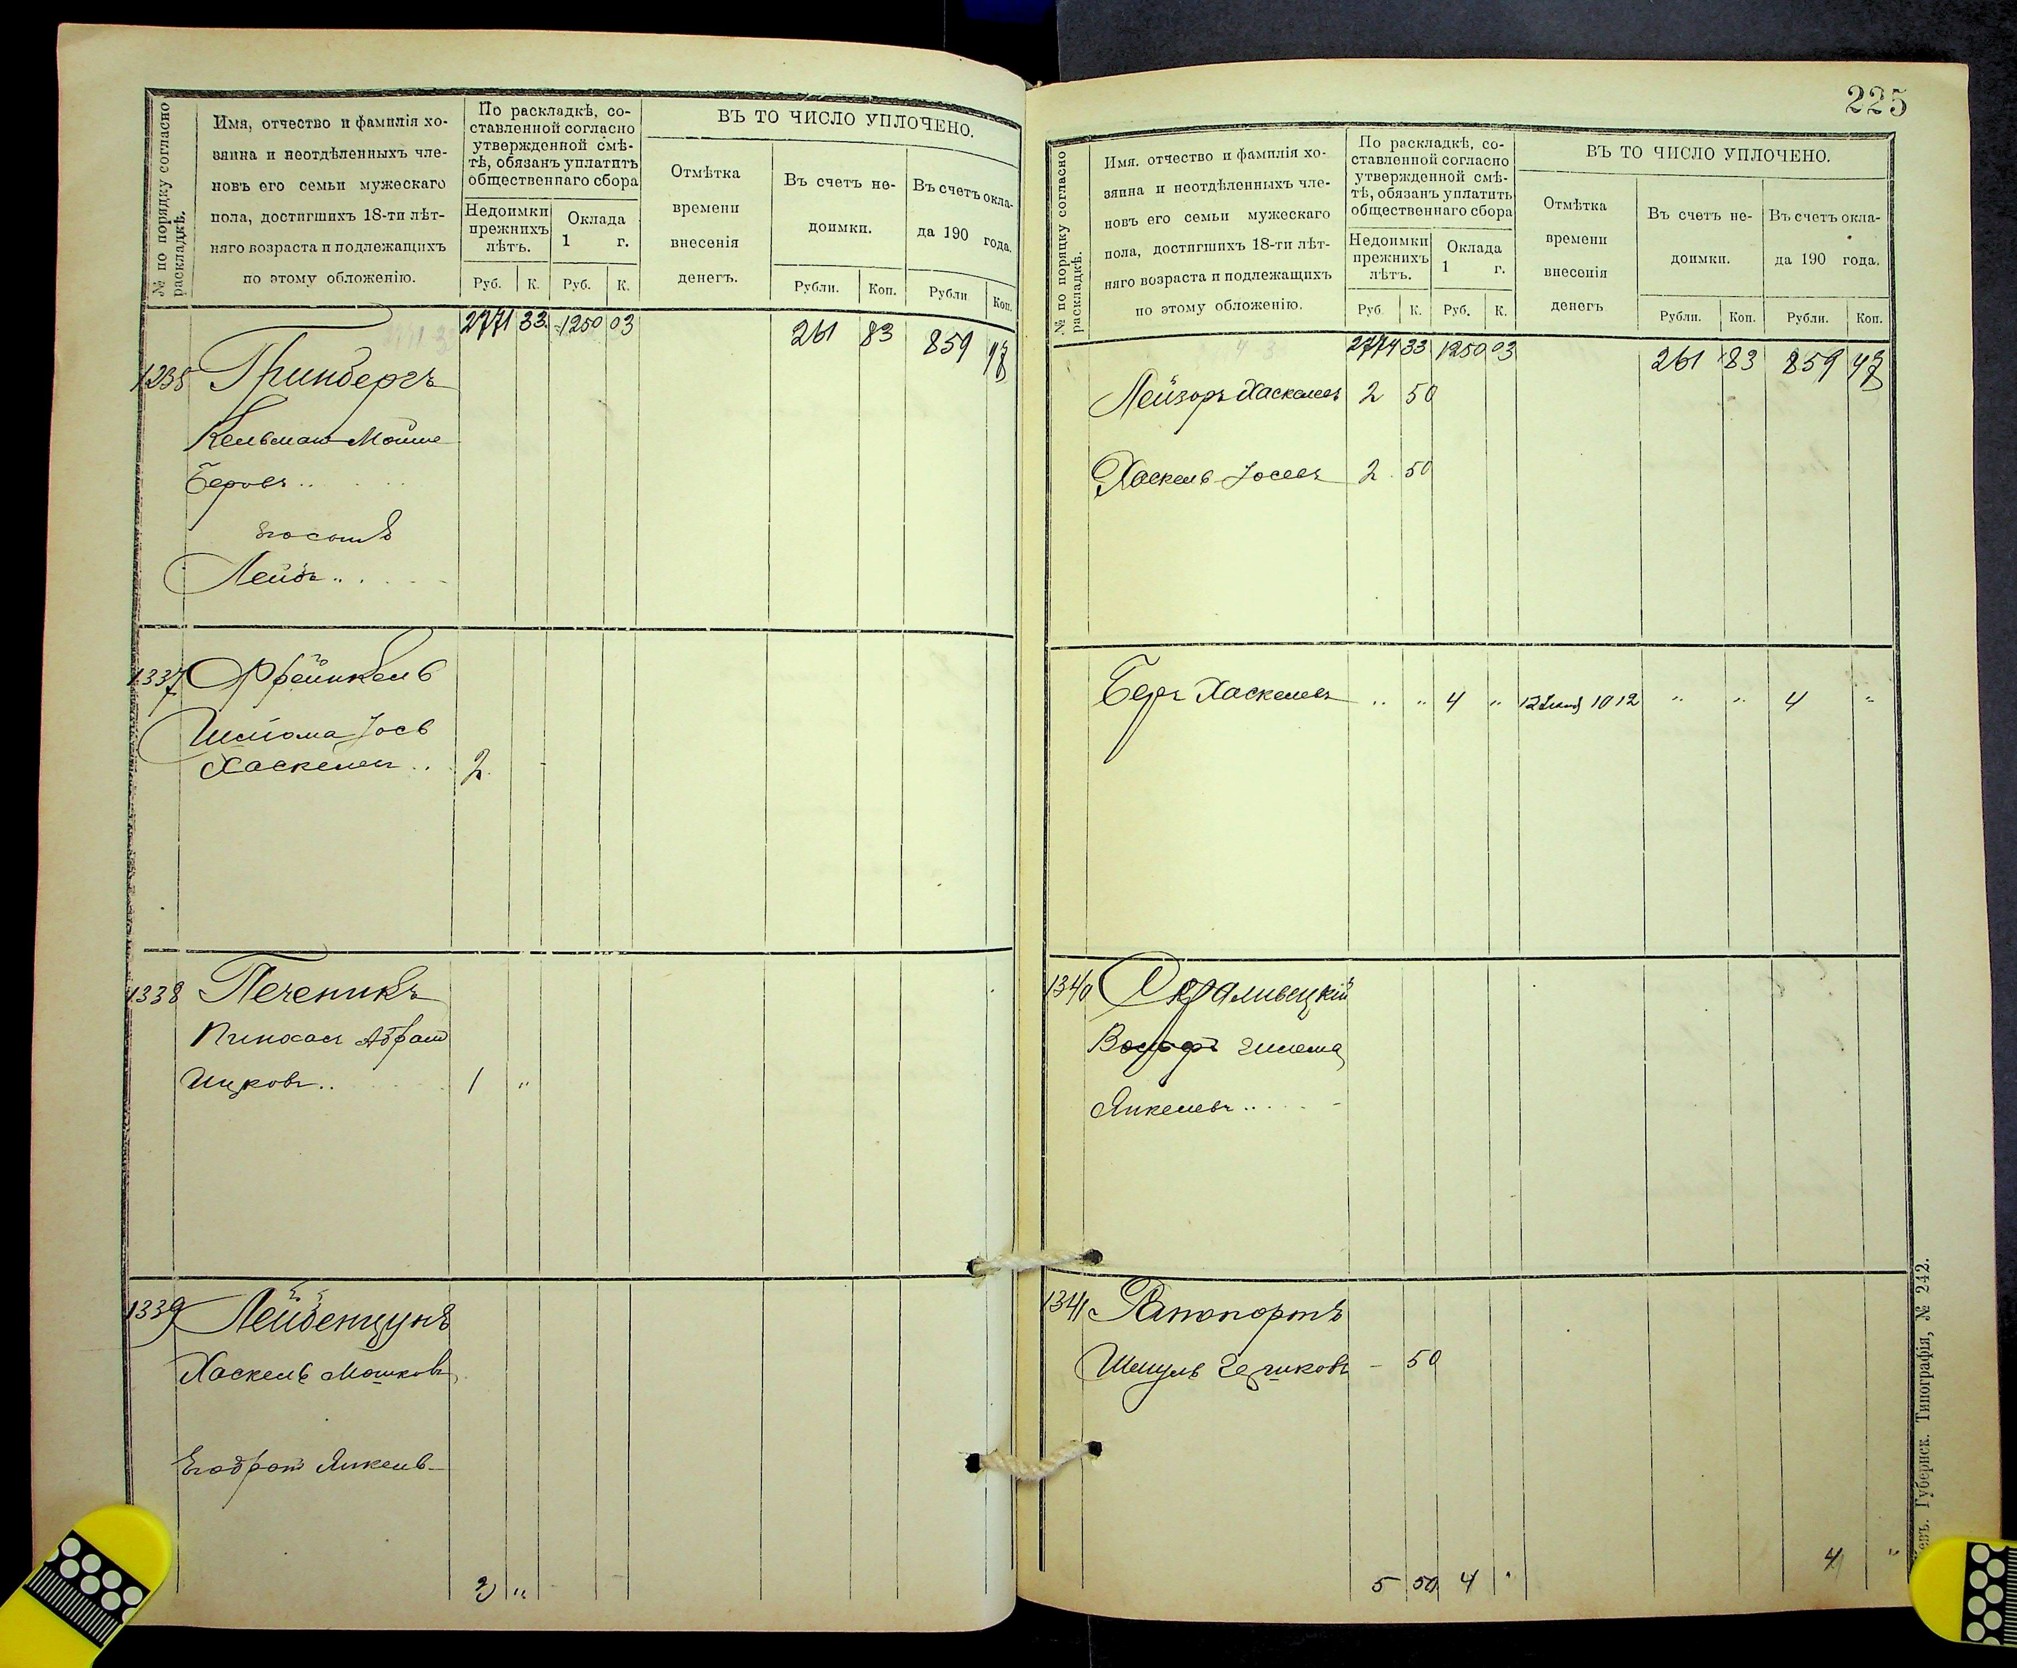 № по порядку согласно раскладкѣ.
Имя, отчество и фамилія хо-
зяина и неотдѣленныхъ чле-
новъ его семьи мужескаго
пола, достигшихъ 18-ти лѣт-
няго возраста и подлежащихъ
по этому обложенію.
По раскладкѣ, со-
ставленной согласно
утвержденной смѣ-
тѣ, обязанъ уплатить
общественнаго сбора
Недоимки
прежнихъ
лѣтъ.
Оклада
1 г.
Руб. К. Руб. К.
ВЪ ТО ЧИСЛО УПЛОЧЕНО.
Отмѣтка
времени
внесенія
денегъ.
Въ счетъ не-
доимки.
Въ счетъ окла-
да 190 года.
Рубли. Коп. Рубли Коп.
2771 33 1250 03 261 83 859 97
1235 Гринбергъ
Кельман Мойше
Беровъ
его сынъ
Лейбъ
1337 Френкель
Шлиома Іось
Хаскелев 2
1338 Печеникъ
Пинхас Абрам
Ицковъ 1 "
1339 Лейбенцунъ
Хаскель Мошков
Его брат Янкель
3 "
225
№ по порядку согласно раскладкѣ.
Имя, отчество и фамилія хо-
зяина и неотдѣленныхъ чле-
новъ его семьи мужескаго
пола, достигшихъ 18-ти лѣт-
няго возраста и подлежащихъ
по этому обложенію.
По раскладкѣ, со-
ставленной согласно
утвержденной смѣ-
тѣ, обязанъ уплатить
общественнаго сбора
Недоимки
прежнихъ
лѣтъ.
Оклада
1 г.
Руб. К. Руб. К.
ВЪ ТО ЧИСЛО УПЛОЧЕНО.
Отмѣтка
времени
внесенія
денегъ
Въ счетъ не-
доимки.
Въ счетъ окла-
да 190 года.
Рубли. Коп. Рубли. Коп.
2774 33 1250 03 261 83 859 97
Лейзоръ Хаскелев 2 50
Хаскель Іосев 2 50
Беръ Хаскелев " " 4 " 12 1012 " " 4 "
1340 Скраливецкій
Вольф Шлема
Янкелевъ
1341 Рапопортъ
Шмуль - 50
5 50 4 " 4 "
Губернск. Типографія, № 242.